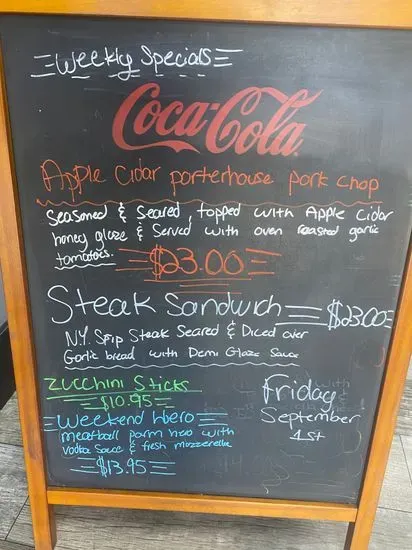 Weekly Specials
Coca-Cola
Apple Cidar porterhouse pork chop
Seasoned & Seared, topped with Apple Cidar
honey glaze & Served with oven roasted garlic
tomatoes.
$23.00
Steak Sandwich $23.00
N.Y. Srip Steak Seared & Diced over
Garlic bread with Demi Glaze Sauce
Zucchini Sticks
$10.95
Weekend Hero
meatball parm hero with
vodka sauce & fresh mozzerella
$13.95
Friday
September
1st